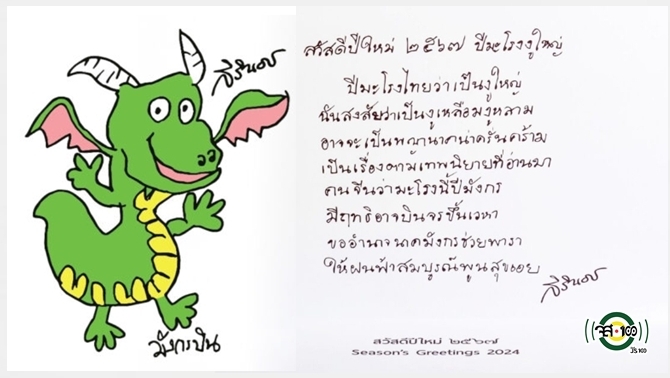 สิรินธร
มังกรบิน
สวัสดีปีใหม่ ๒๕๖๗ ปีมะโรงงูใหญ่
ปีมะโรงไทยว่าเป็นงูใหญ่
ฉันสงสัยว่าเป็นงูเหลือมงูหลาม
อาจจะเป็นพญานาคน่าครั่นคร้าม
เป็นเรื่องตามเทพนิยายที่อ่านมา
คนจีนว่ามะโรงนี้ปีมังกร
มีฤทธิอาจบินจรขึ้นเวหา
ขออำนาจนาคมังกรช่วยพารา
ให้ฝนฟ้าสมบูรณ์พูนสุขเอย
สิรินธร
สวัสดีปีใหม่ ๒๕๖๗
Season's Greetings 2024
จส.๑๐๐
JS100